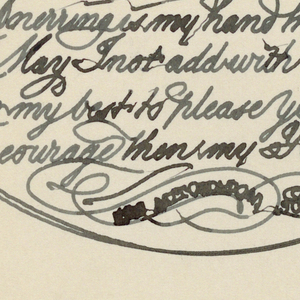 nerring is my hand
May I not add with
my best to please
courage then my